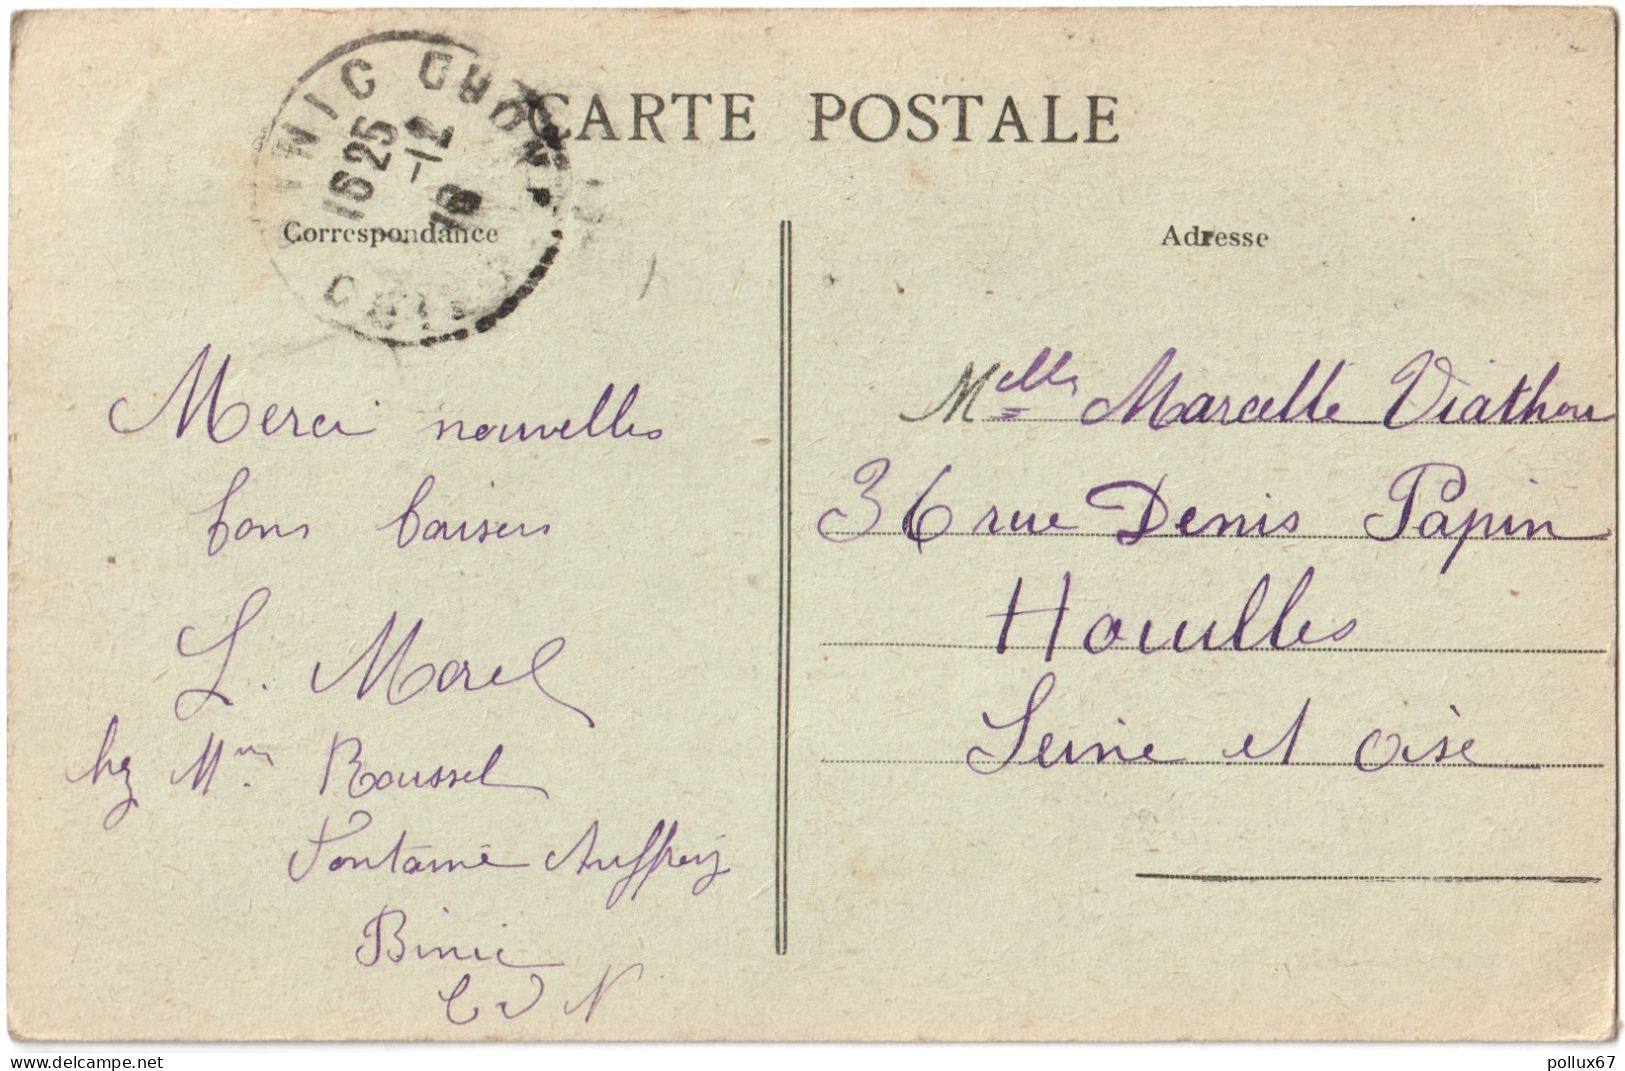 CARTE POSTALE
BINIC CÔTES DU NORD
16 25
-12
18
Correspondance
Adresse
Merci nouvelles
bons baisers
L. Morel
chez Mme Roussel
Fontaine Auffray
Binic
C d N
Melle Marcelle Viathou
36 rue Denis Papin
Houilles
Seine et Oise
www.delcampe.net
pollux67